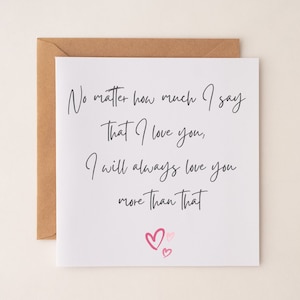 No matter how much I say
that I love you,
I will always love you
more than that